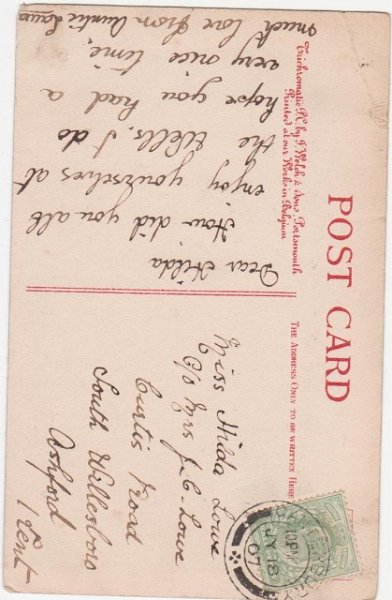 POST CARD
THE ADDRESS ONLY TO BE WRITTEN HERE
Trichromatic P.C. by J. Welch & Sons, Portsmouth
Printed at our Works in Belgium
Dear Hilda
How did you all
enjoy yourselves at
the Wells. I do
hope you had a
very nice time.
much love from Auntie
Miss Hilda Lowe
C/o Mrs J. C. Lowe
Curtis Road
South Willesboro
Ashford
Kent
PM
JY 18
07